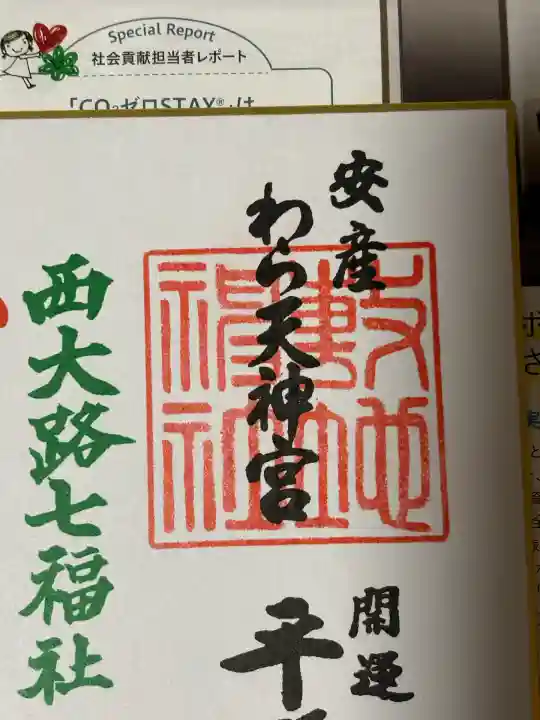 Special Report
社会貢献担当者レポート
「CO₂ゼロSTAY®」は
安産
わら天神宮
敷地神社
開運
平
西大路七福社